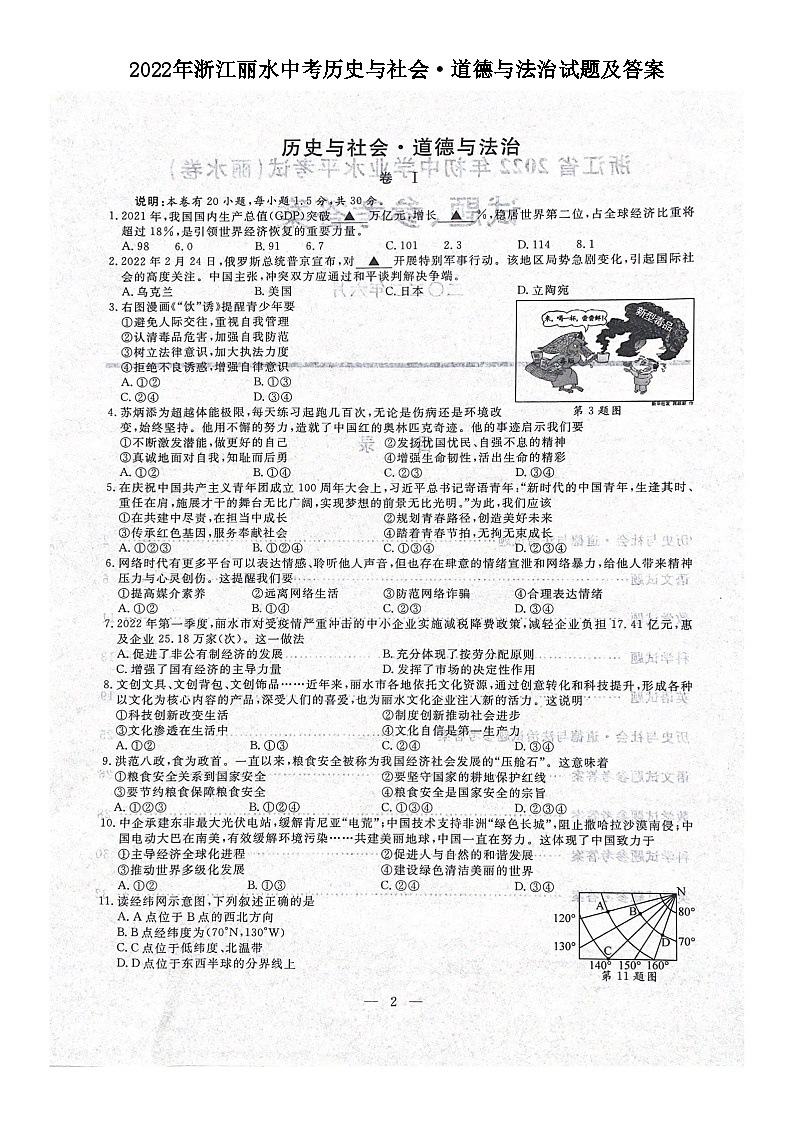 2022年浙江丽水中考历史与社会·道德与法治试题及答案
历史与社会·道德与法治
卷 Ⅰ
说明:本卷有20小题,每小题1.5分,共30分。
1.2021年,我国国内生产总值(GDP)突破 ▲ 万亿元,增长 ▲ %,稳居世界第二位,占全球经济比重将
超过18%,是引领世界经济恢复的重要力量。
A.98 6.0 B.91 6.7 C.101 2.3 D.114 8.1
2.2022年2月24日,俄罗斯总统普京宣布,对 ▲ 开展特别军事行动。该地区局势急剧变化,引起国际社
会的高度关注。中国主张,冲突双方应通过和平谈判解决争端。
A.乌克兰 B.美国 C.日本 D.立陶宛
3.右图漫画《“饮”诱》提醒青少年要
①避免人际交往,重视自我管理
②认清毒品危害,加强自我防范
③树立法律意识,加大执法力度
④拒绝不良诱惑,增强自律意识
A.①② B.①③
C.②④ D.③④
来,喝一杯,尝尝鲜!
新型毒品
第3题图
4.苏炳添为超越体能极限,每天练习起跑几百次,无论是伤病还是环境改
变,始终坚持。他用不懈的努力,造就了中国红的奥林匹克奇迹。他的事迹启示我们要
①不断激发潜能,做更好的自己 ②发扬忧国忧民、自强不息的精神
③真诚地面对自我,知耻而后勇 ④增强生命韧性,活出生命的精彩
A.①② B.①④ C.②③ D.③④
5.在庆祝中国共产主义青年团成立100周年大会上,习近平总书记寄语青年:“新时代的中国青年,生逢其时、
重任在肩,施展才干的舞台无比广阔,实现梦想的前景无比光明。”为此,我们应该
①在共建中尽责,在担当中成长 ②规划青春路径,创造美好未来
③传承红色基因,服务奉献社会 ④踏着青春节拍,无拘无束成长
A.①②③ B.①②④ C.①③④ D.②③④
6.网络时代有更多平台可以表达情感、聆听他人声音,但也存在肆意的情绪宣泄和网络暴力,给他人带来精神
压力与心灵创伤。这提醒我们要
①提高媒介素养 ②远离网络生活 ③防范网络诈骗 ④合理表达情绪
A.①② B.①④ C.②③ D.③④
7.2022年第一季度,丽水市对受疫情严重冲击的中小企业实施减税降费政策,减轻企业负担17.41亿元,惠
及企业25.18万家(次)。这一做法
A.促进了非公有制经济的发展 B.充分体现了按劳分配原则
C.增强了国有经济的主导力量 D.发挥了市场的决定性作用
8.文创文具、文创背包、文创饰品……近年来,丽水市各地依托文化资源,通过创意转化和科技提升,形成各种
以文化为核心内容的产品,深受人们的喜爱,也为丽水文化企业注入新的活力。这说明
①科技创新改变生活 ②制度创新推动社会进步
③文化渗透在生活中 ④文化自信是第一生产力
A.①② B.①③ C.②④ D.③④
9.洪范八政,食为政首。一直以来,粮食安全被称为我国经济社会发展的“压舱石”。这意味着
①粮食安全关系到国家安全 ②要坚守国家的耕地保护红线
③要节约粮食保障粮食安全 ④粮食安全是国家安全的宗旨
A.①②③ B.①②④ C.①③④ D.②③④
10.中企承建东非最大光伏电站,缓解肯尼亚“电荒”;中国技术支持非洲“绿色长城”,阻止撒哈拉沙漠南侵;中
国电动大巴在南美,有效缓解环境污染……共建美丽地球,中国一直在努力。这体现了中国致力于
①主导经济全球化进程 ②促进人与自然的和谐发展
③推动世界多级化发展 ④建设绿色清洁美丽的世界
A.①② B.①③ C.②④ D.③④
11.读经纬网示意图,下列叙述正确的是
A.A点位于B点的西北方向
B.B点经纬度为(70°N,130°W)
C.C点位于低纬度、北温带
D.D点位于东西半球的分界线上
N
A
B
80°
120°
D
70°
130°
C
140° 150° 160°
第11题图
— 2 —